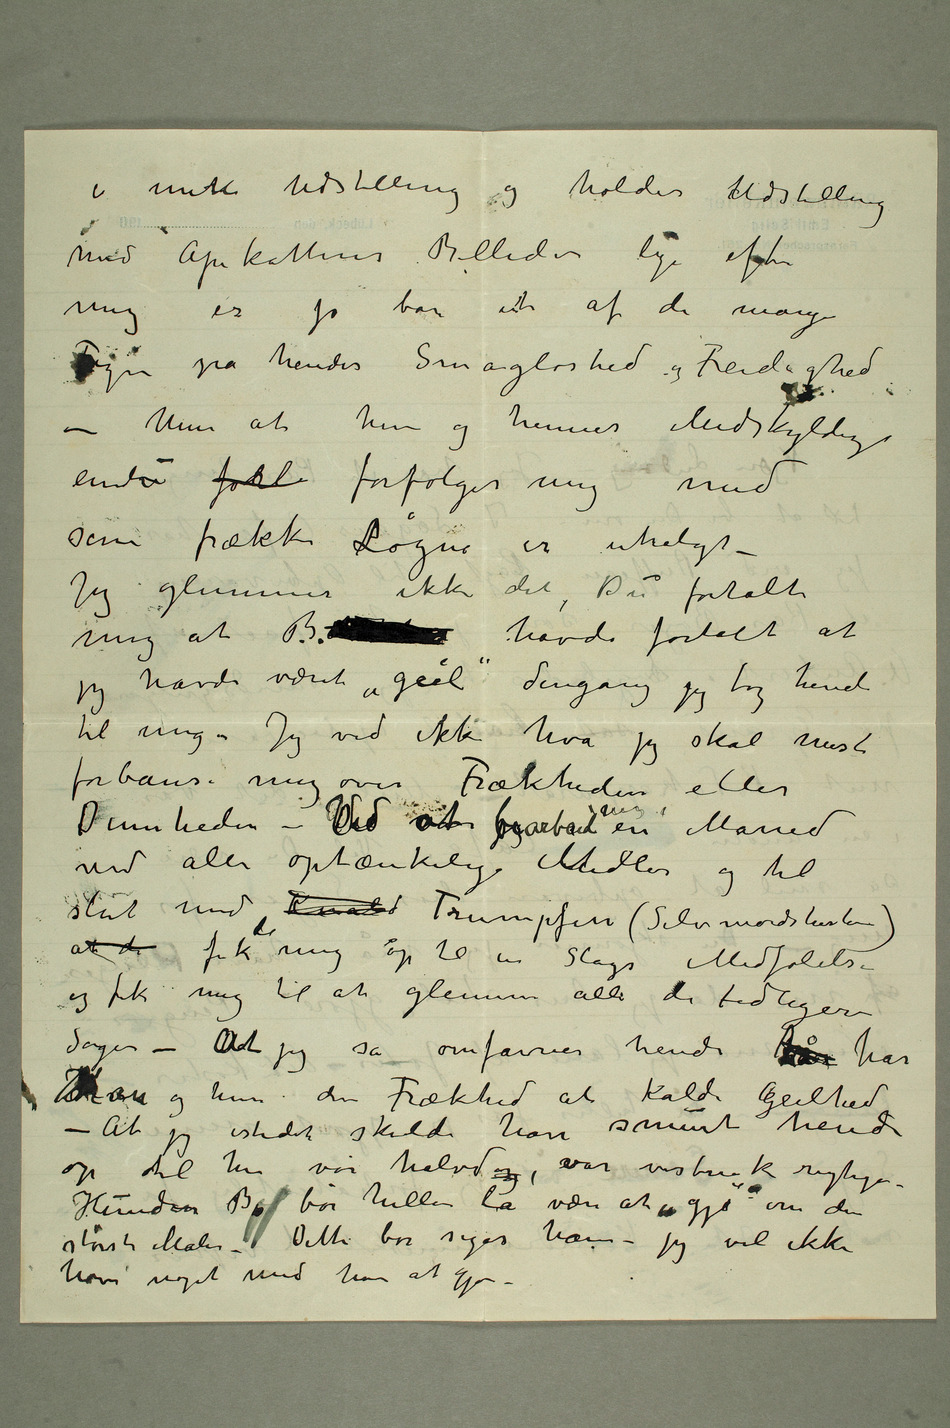 i mitt Udstilling og holder Udstilling
med Apekattenes Billeder lige efter
mig er jo bare et af de mange
Tegn på hendes Smagløshed og Feidaghed
– Men at hun og hennes Medskyldige
endnu forfølger mig med
sine frække Løgne er utroligt –
Jeg glemmer ikke det, Du fortalte
mig at B. havde fortalt at
jeg havde været „geil" dengang jeg tog hende
til mig – Jeg ved ikke hva jeg skal mest
forbause mig over Frækheden eller
Dumheden – Ved at bearbeide mig en Maned
med alle optænkelige Midler og til
slut med Knald Trumpfen (Selvmordshistorien)
at de fik de mig op til en Slags Medfølelse
og fik mig til at glemme alle de tidligere
Sager – At jeg så omfavner hende har
Man og hun den Frækhed at kalde Geilhed
– At jeg istedet skulde have smurt hende
op til hun var halvdø, var vistnok rigtigere –
Hunden B. bør heller la være at „gjø" om den
største Maler – Dette bør siges ham – jeg vil ikke
have noget med ham at gjøre –